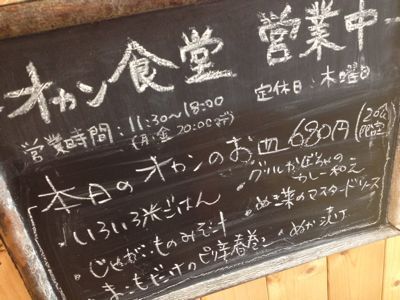 オカン食堂 営業中
営業時間：11:30〜18:00 定休日：木曜日
(月・金 20:00まで)
本日のオカンのお皿 680円 (20食限定)
・いろいろ米ごはん ・グリルかぼちゃのカレー和え
・じゃがいものみそ汁 ・ぬき菜のマスタードソース
だけのピリ辛春巻 ・ぬか漬け